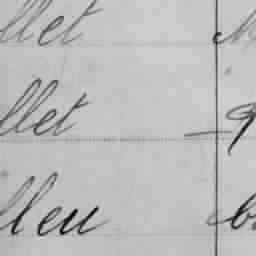 llet M
llet — 9
lleu b.